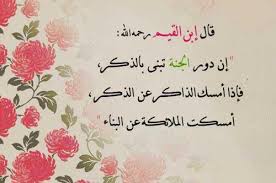 قال إبن القيم رحمه الله :
"إن دور الجنة تبنى بالذكر،
فإذا أمسك الذاكر عن الذكر،
أمسكت الملائكة عن البناء "